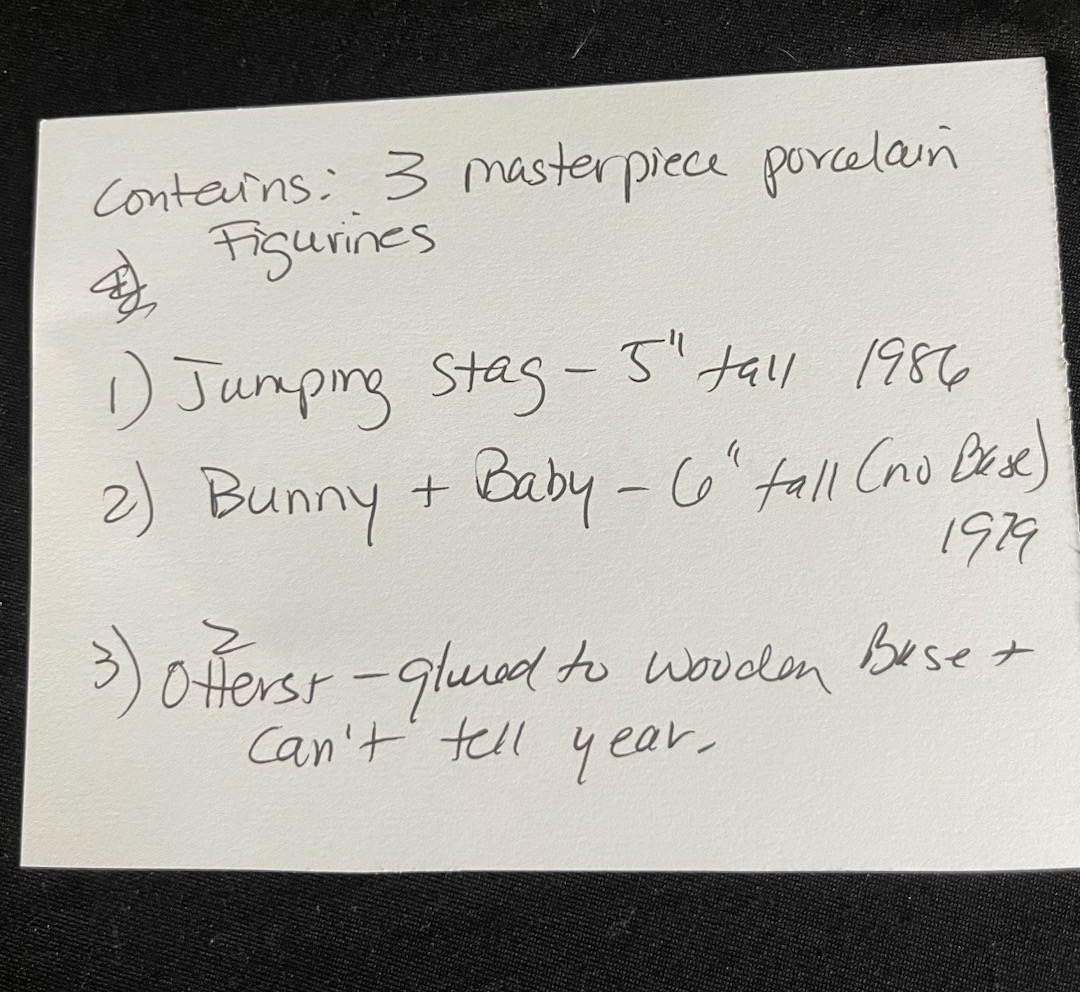 Contains: 3 masterpiece porcelain
Figurines
1) Jumping Stag - 5" tall 1986
2) Bunny + Baby - 6" tall (no Base)
1979
2
3) Otters - glued to wooden Base +
can't tell year.